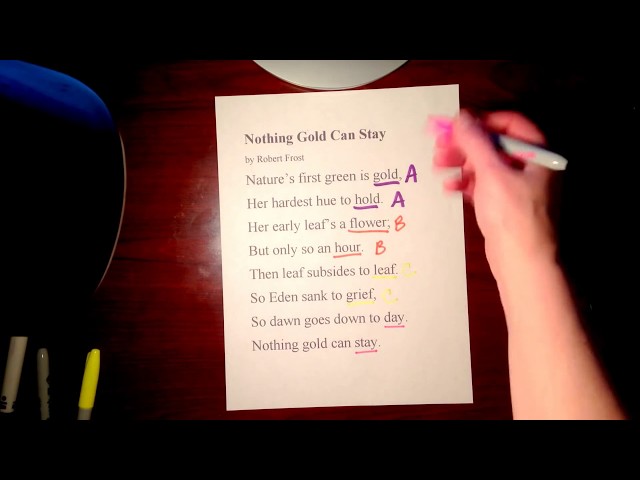 Nothing Gold Can Stay
by Robert Frost
Nature's first green is gold, A
Her hardest hue to hold. A
Her early leaf's a flower; B
But only so an hour. B
Then leaf subsides to leaf. C
So Eden sank to grief, C
So dawn goes down to day.
Nothing gold can stay.